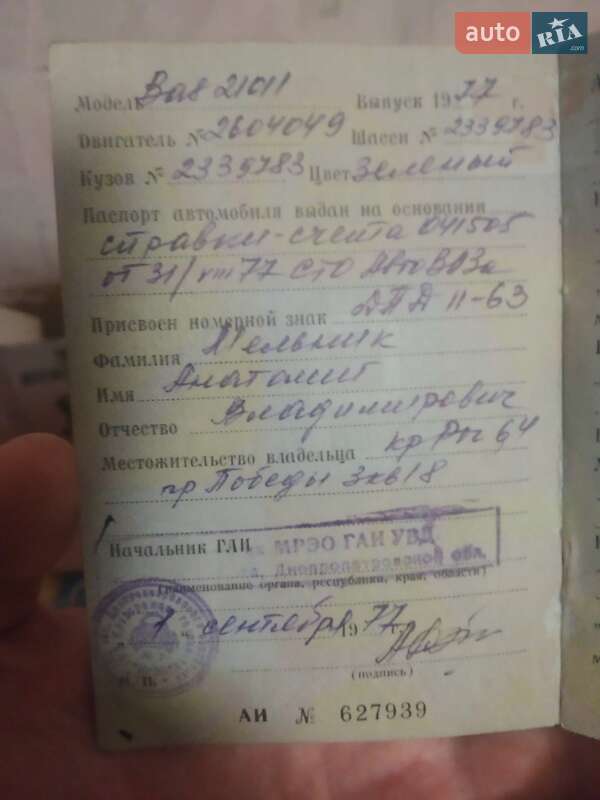 auto RIA .com
Модель Ваз 21011 Выпуск 1977 г.
Двигатель № 2604049 Шасси № 2339783
Кузов № 2339783 Цвет зеленый
Паспорт автомобиля выдан на основании
справки-счета 041505
от 31/VIII 77 СТО АвтоВАЗа
Присвоен номерной знак ДПД 11-63
Фамилия Мельник
Имя Анатолий
Отчество Владимирович
Местожительство владельца кр Рог 64
пр Победы 3 кв 18
Начальник ГАИ МРЭО ГАИ УВД
Днепропетровской обл.
(наименование органа, республики, края, области)
7 сентября 1977
(подпись)
М. П.
АИ № 627939